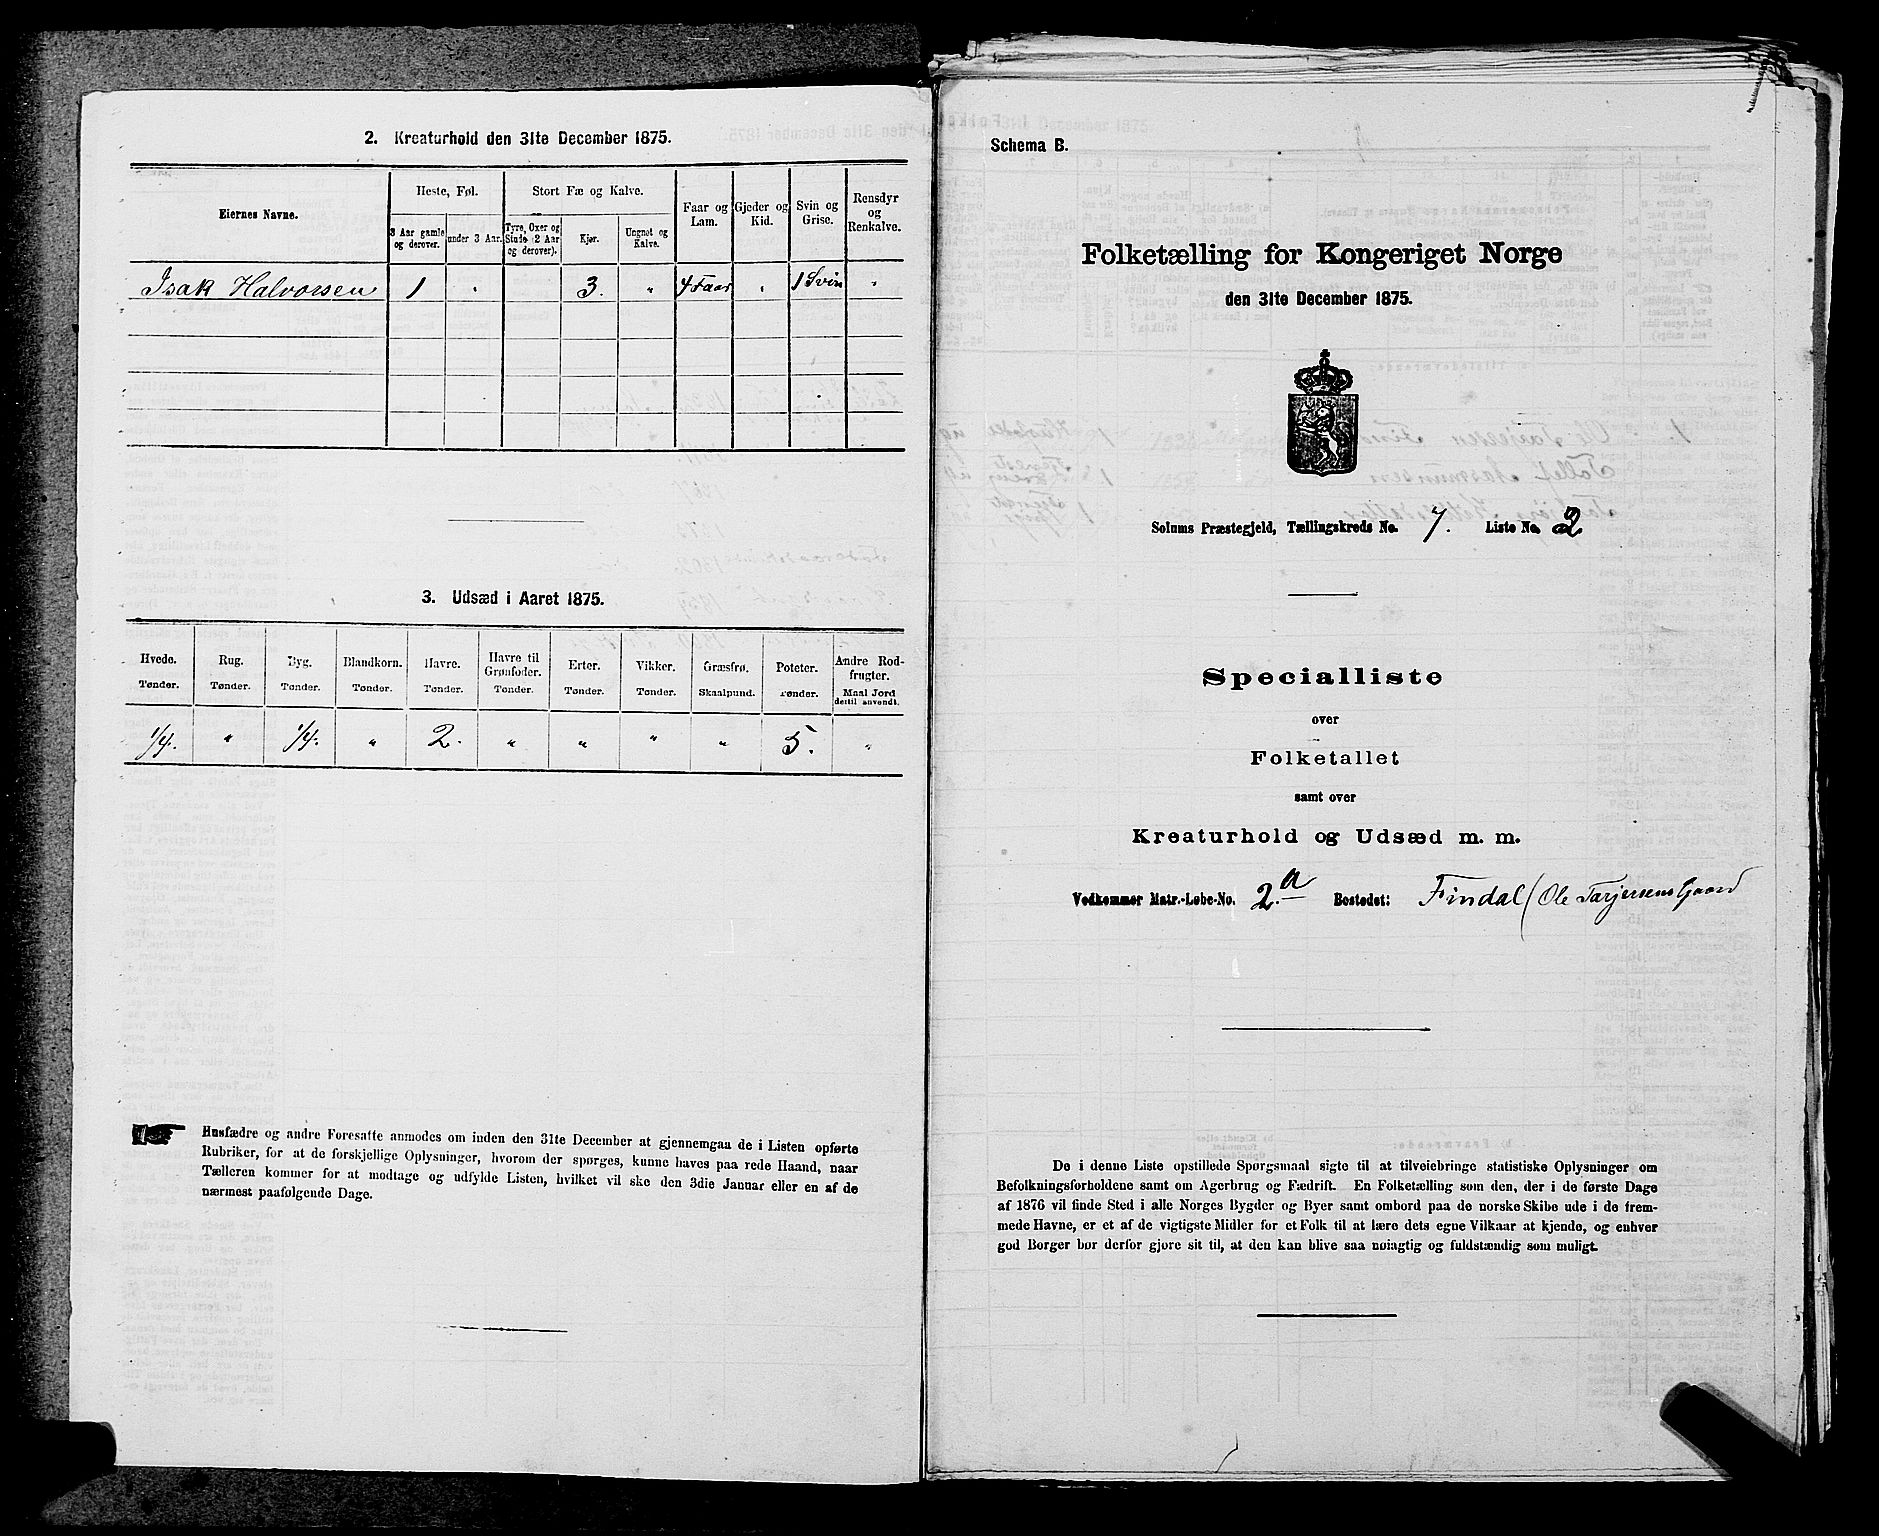 2. Kreaturhold den 31te December 1875.
Eiernes Navne.
Heste, Føl.
Stort Fæ og Kalve.
Faar og Lam.
Gjeder og Kid.
Svin og Grise.
Rensdyr og Renkalve.
3 Aar gamle og derover.
under 3 Aar.
Tyre, Oxer og Stude 2 Aar og derover).
Kjør.
Ungnøt og Kalve.
Isak Halvorsen 1 " 3. " 4 Faar " 1 Svin "
3. Udsæd i Aaret 1875.
Hvede. Rug. Byg. Blandkorn. Havre. Havre til Grønfoder. Erter. Vikker. Græsfrø. Poteter. Andre Rodfrugter.
Tønder. Tønder. Tønder. Tønder. Tønder. Tønder. Tønder. Tønder. Skaalpund. Tønder. Maal Jord dertil anvendt.
1/4. " 1/4. " 2. " " " " 5. "
Husfædre og andre Foresatte anmodes om inden den 31te December at gjennemgaa de i Listen opførte
Rubriker, for at de forskjellige Oplysninger, hvorom der spørges, kunne haves paa rede Haand, naar
Tælleren kommer for at modtage og udfylde Listen, hvilket vil ske den 3die Januar eller en af de
nærmest paafølgende Dage.
Schema B.
Folketælling for Kongeriget Norge
den 31te December 1875.
Solums Præstegjeld, Tællingskreds No. 7. Liste No. 2
Specialliste
over
Folketallet
samt over
Kreaturhold og Udsæd m. m.
Vedkommer Matr.-Løbe-No. 2.a Bostedet: Findal (Ole Tarjersens Gaard
De i denne Liste opstillede Spørgsmaal sigte til at tilveiebringe statistiske Oplysninger om
Befolkningsforholdene samt om Agerbrug og Fædrift. En Folketælling som den, der i de første Dage
af 1876 vil finde Sted i alle Norges Bygder og Byer samt ombord paa de norske Skibe ude i de frem-
mede Havne, er et af de vigtigste Midler for et Folk til at lære dets egne Vilkaar at kjende, og enhver
god Borger bør derfor gjøre sit til, at den kan blive saa nøiagtig og fuldstændig som muligt.